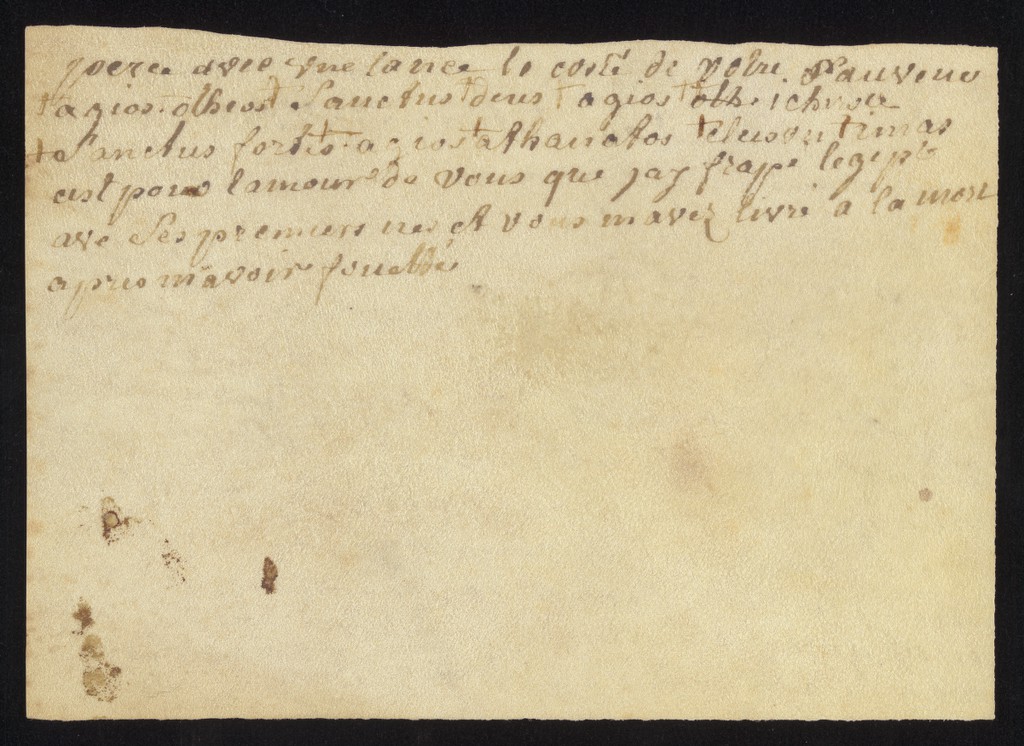 percé avec vne lance le costé de votre Sauveur
† agios † otheos † Sanctus † deus † agios † othe ichiros
† Sanctus fortis † agios † athanatos † eleison imas
cest pour lamour de vous que jay frapé legipte
avec Ses premiers nes et vous mavez livré a la mort
apres mavoir fouetté